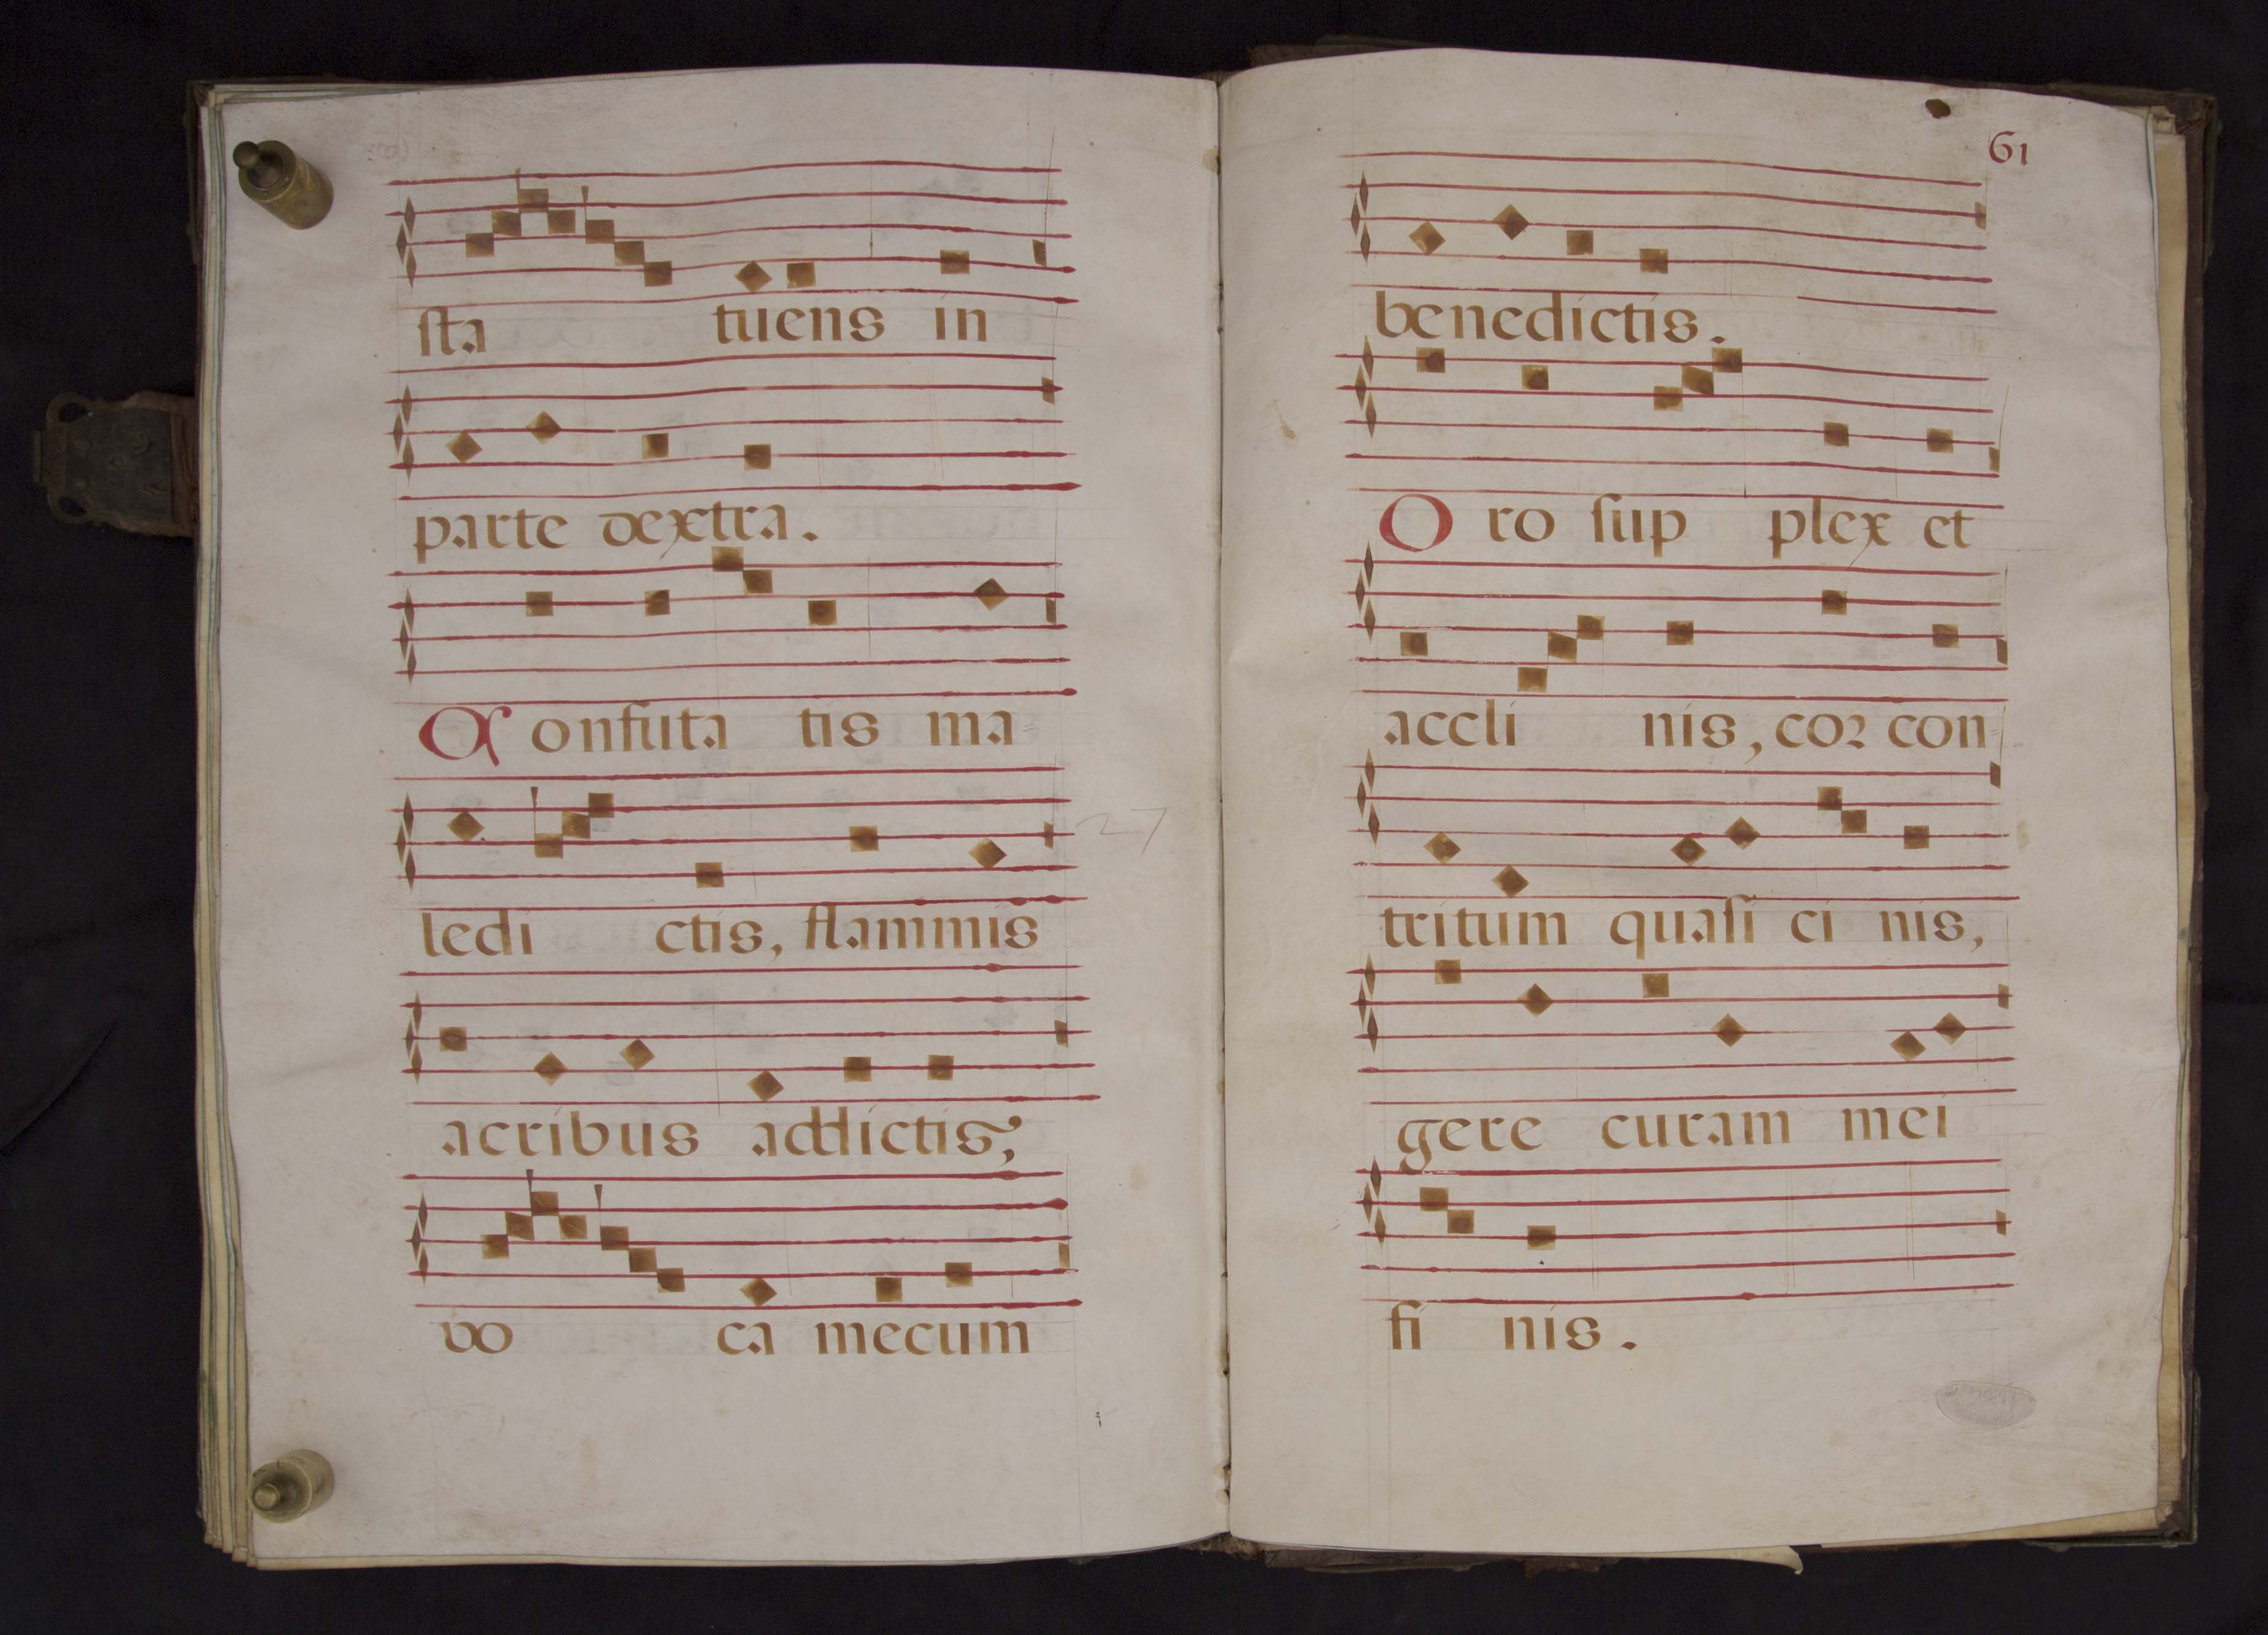 sta tuens in
parte dextra.
Confuta tis ma=
ledi ctis, flammis
acribus addictis,
vo ca mecum
27
61
benedictis.
O ro sup plex et
accli nis, cor con=
tritum quasi ci nis,
gere curam mei
fi nis.